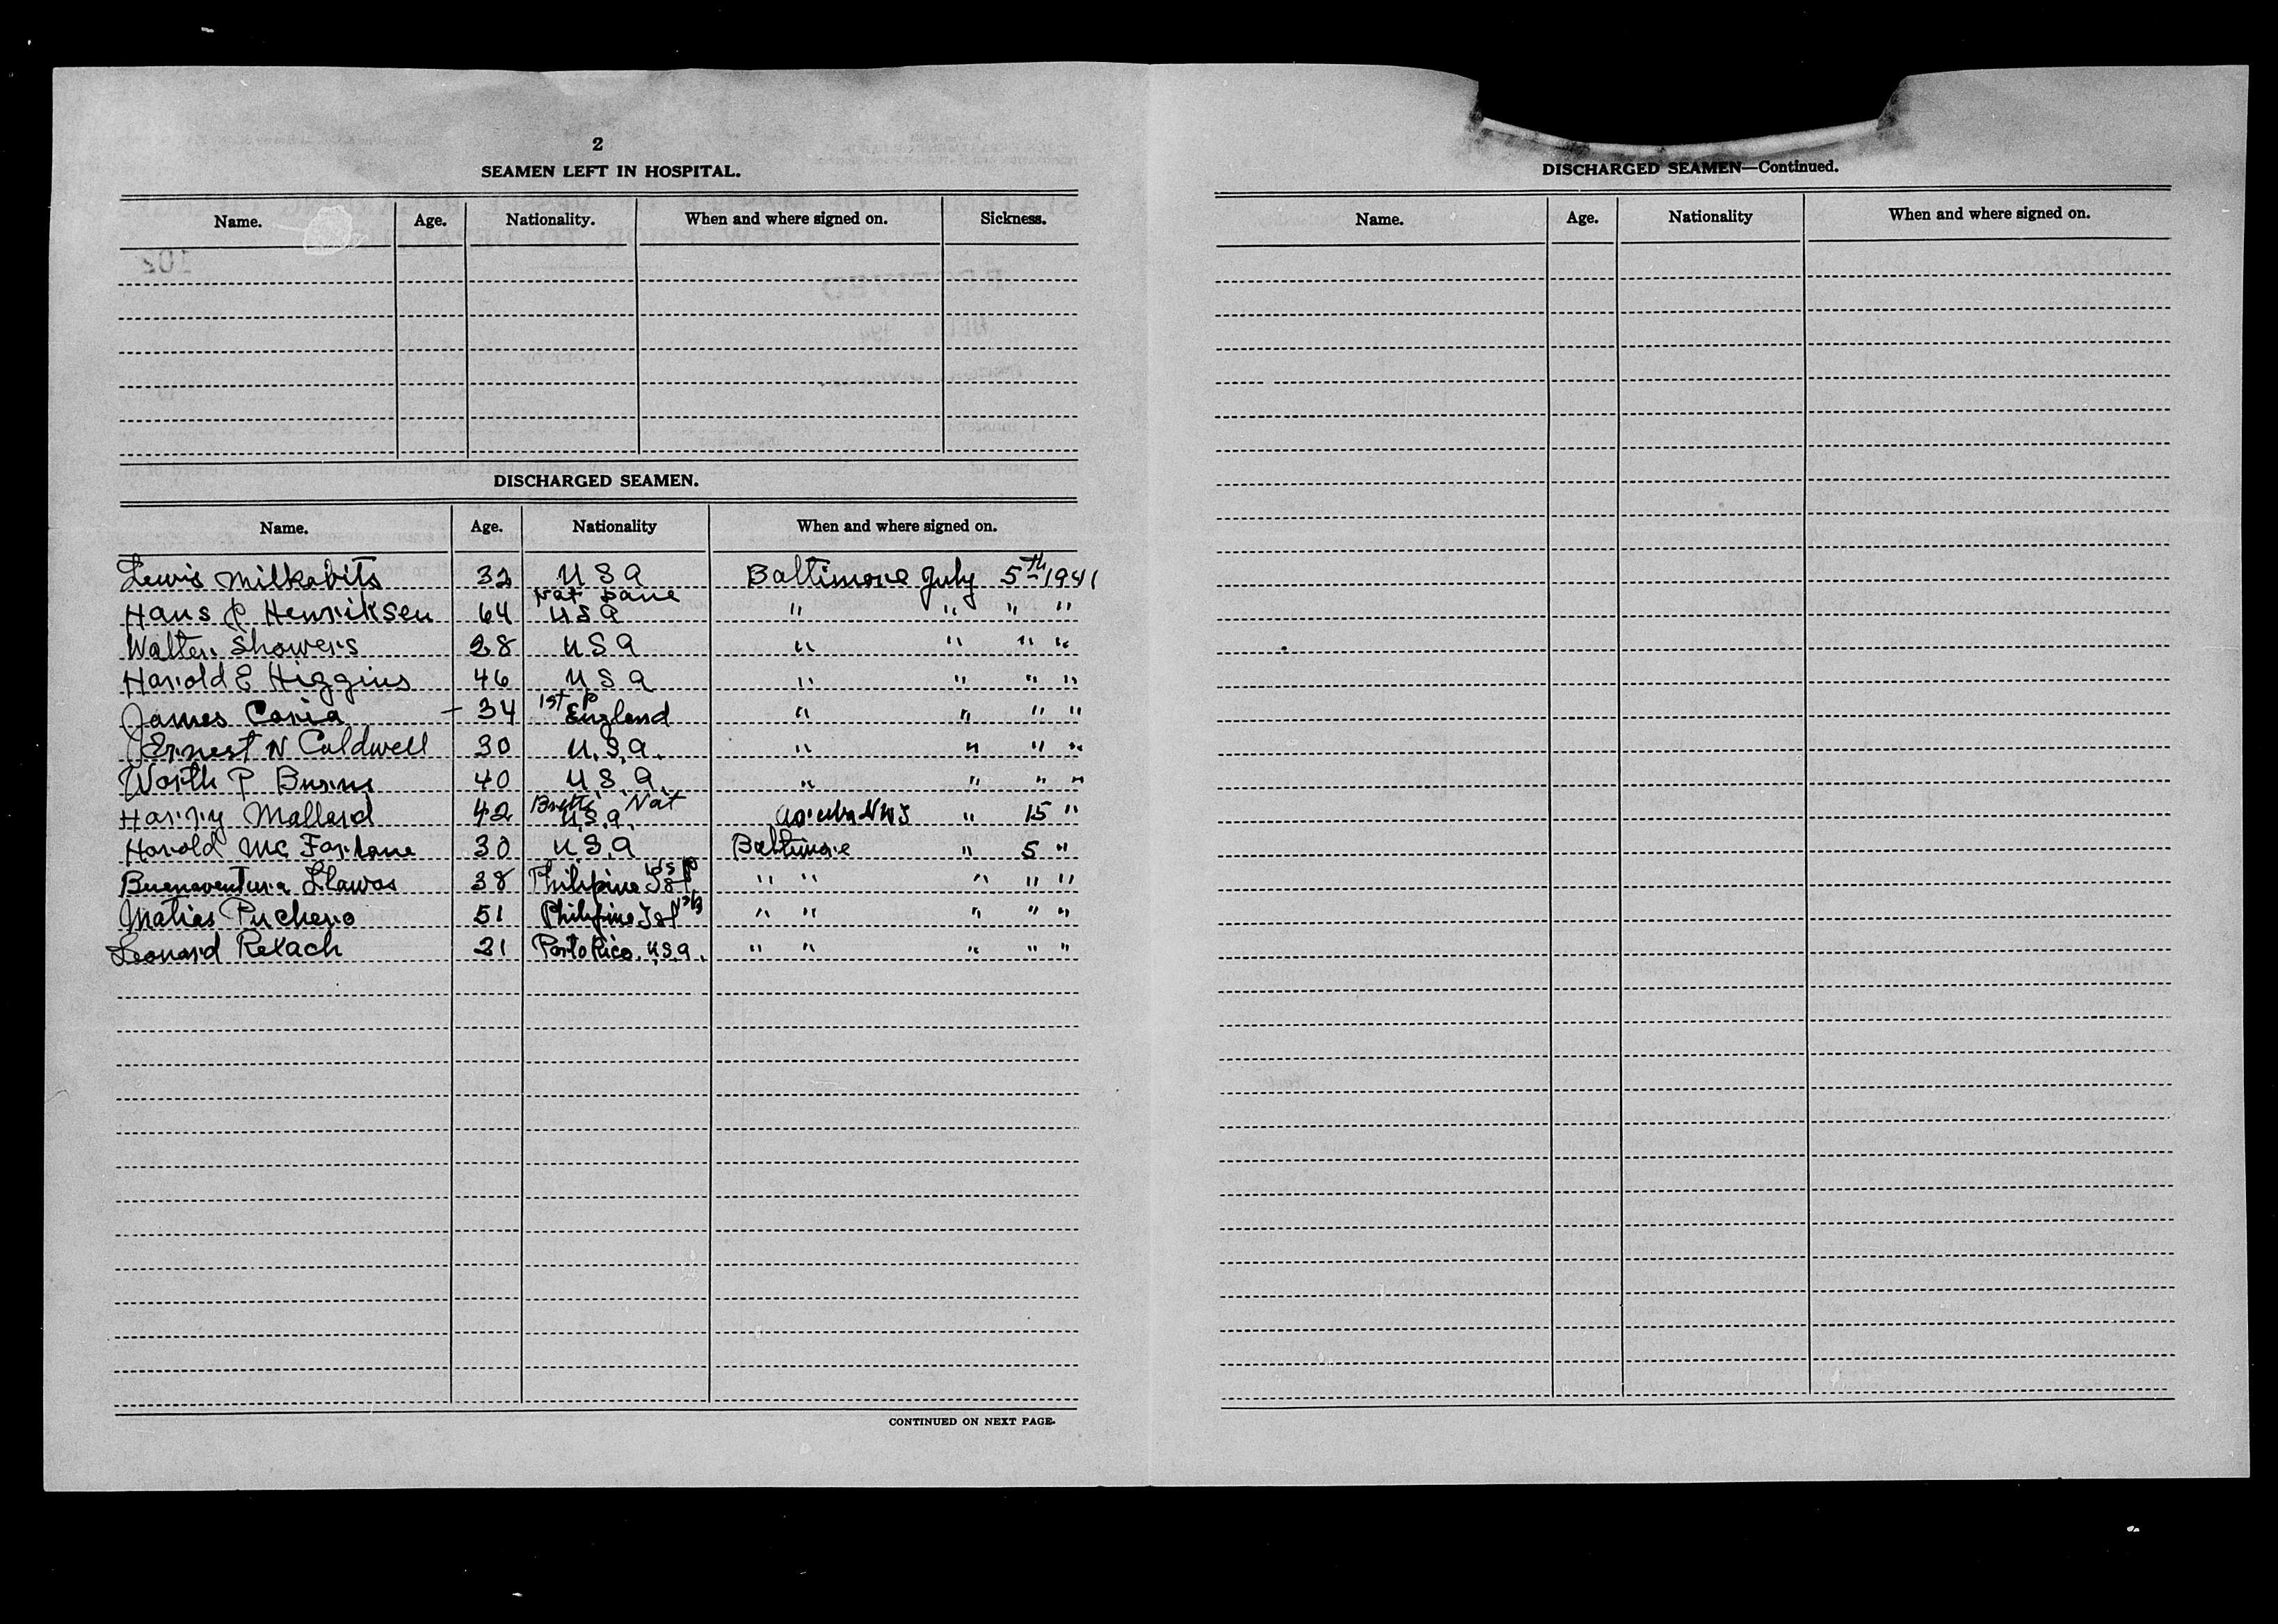 2
SEAMEN LEFT IN HOSPITAL.
Name. Age. Nationality. When and where signed on. Sickness.
DISCHARGED SEAMEN.
Name. Age. Nationality When and where signed on.
Lewis Milkabits 32 U S A Baltimore July 5th 1941
Nat Dane
Hans P Henriksen 64 U S A " " " "
Walter Showers 28 U S A " " " "
Harold E Higgins 46 U S A " " " "
1st P
James Caria 34 England " " " "
Ernest N Caldwell 30 U.S.A. " " " "
Worth P Burns 40 U.S.A. " " " "
Nat
Harry Mallard 42 U.S.A. " 15 "
Harold Mc Farlane 30 U.S.A Baltimore " 5 "
Buenaventura Llawas 38 Philipine Isl " " " " "
Matias Puchero 51 Philipine Isl " " " " "
Leonard Relach 21 Porto Rico. U.S.A. " " " " "
CONTINUED ON NEXT PAGE.
DISCHARGED SEAMEN—Continued.
Name. Age. Nationality When and where signed on.